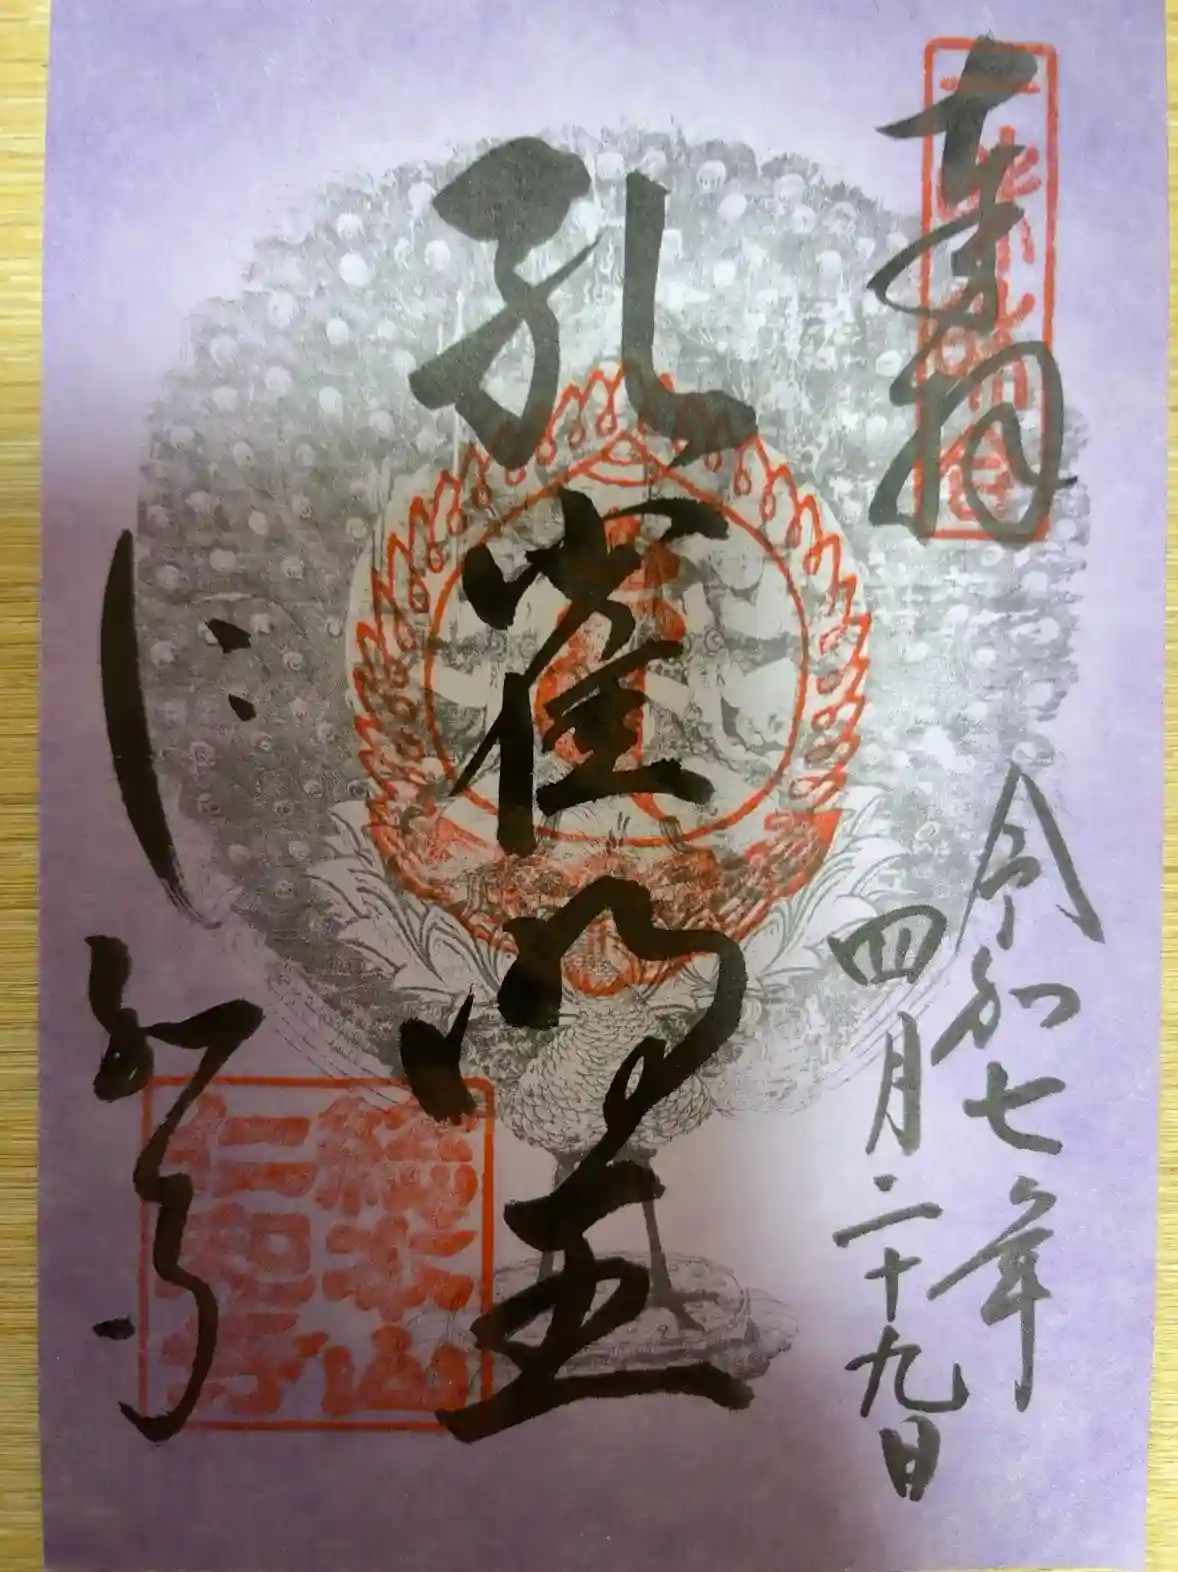 奉拝
令和七年
四月二十九日
孔雀明王
仁和寺
總本山
仁和寺